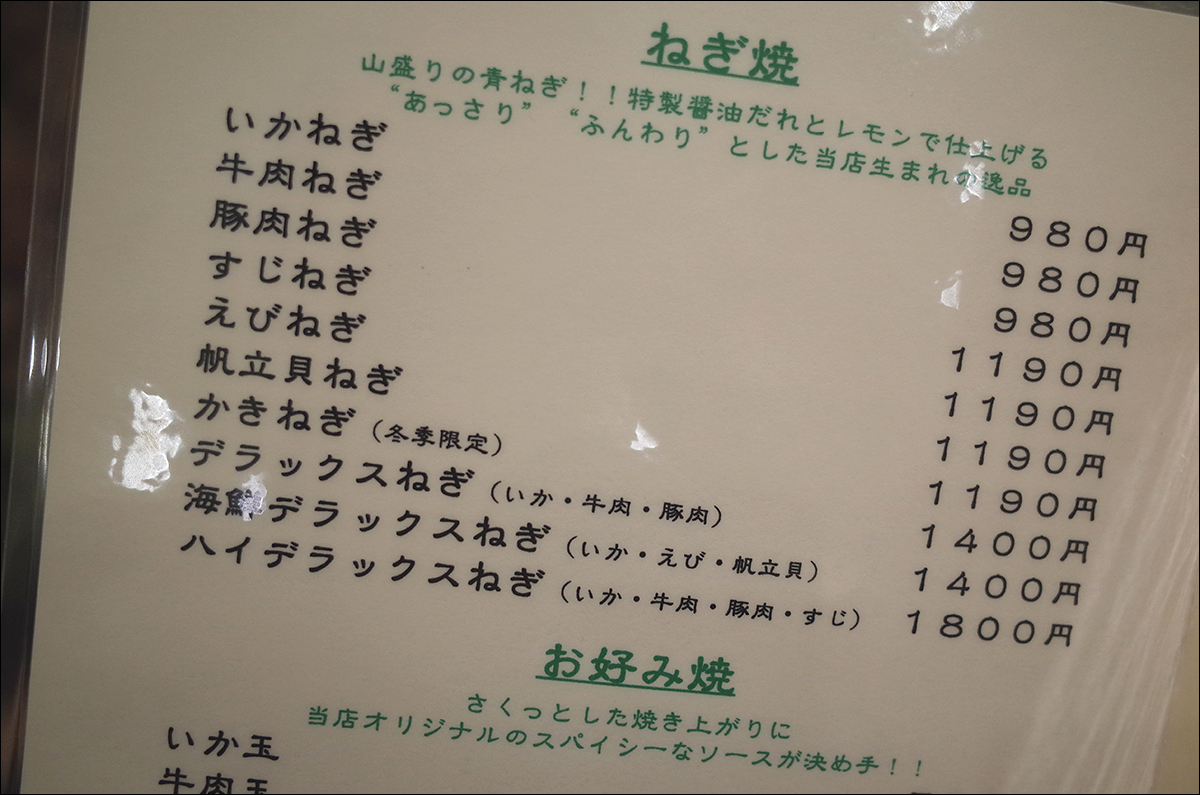 ねぎ焼
山盛りの青ねぎ！！特製醤油だれとレモンで仕上げる
“あっさり” “ふんわり”とした当店生まれの逸品
いかねぎ 980円
牛肉ねぎ 980円
豚肉ねぎ 980円
すじねぎ 1190円
えびねぎ 1190円
帆立貝ねぎ 1190円
かきねぎ（冬季限定） 1190円
デラックスねぎ（いか・牛肉・豚肉） 1400円
海鮮デラックスねぎ（いか・えび・帆立貝） 1400円
ハイデラックスねぎ（いか・牛肉・豚肉・すじ） 1800円
お好み焼
さくっとした焼き上がりに
当店オリジナルのスパイシーなソースが決め手！！
いか玉
牛肉玉